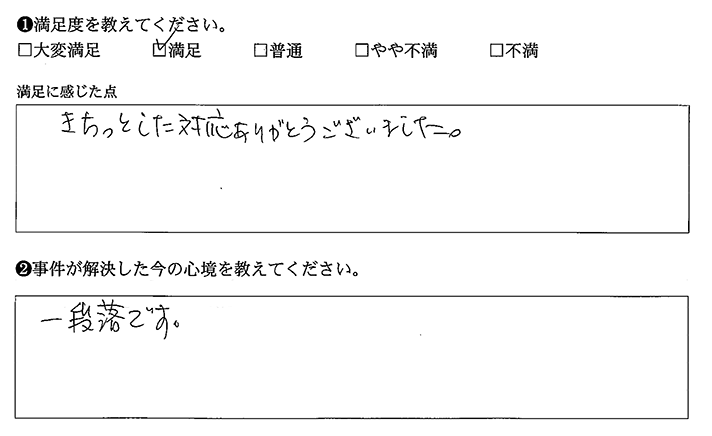 ❶満足度を教えてください。
□大変満足 ☑満足 □普通 □やや不満 □不満
満足に感じた点
きちっとした対応ありがとうございました。
❷事件が解決した今の心境を教えてください。
一段落です。